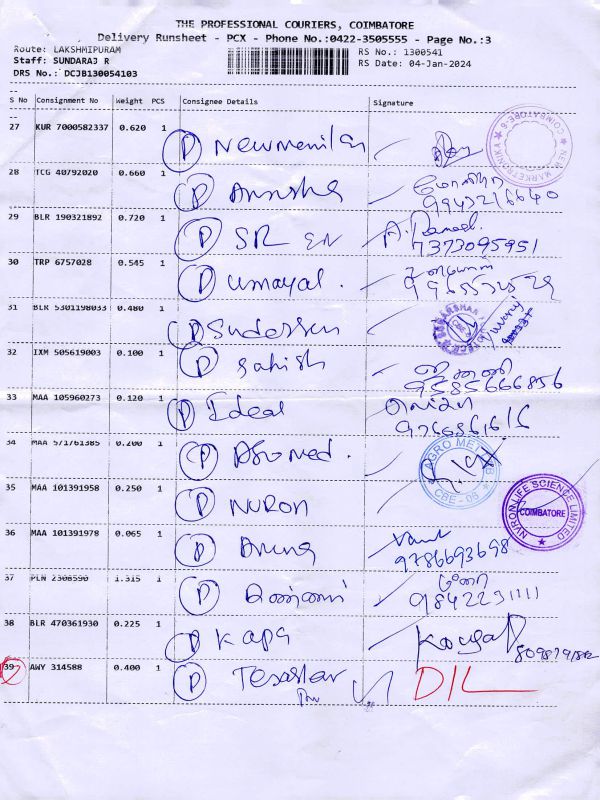 THE PROFESSIONAL COURIERS, COIMBATORE
Delivery Runsheet - PCX - Phone No.:0422-3505555 - Page No.:3
Route: LAKSHMIPURAM
RS No.: 1300541
Staff: SUNDARAJ R
RS Date: 04-Jan-2024
DRS No.: DCJB130054103
S No Consignment No Weight PCS Consignee Details Signature
27 KUR 7000582337 0.620 1 P
28 TCG 40792020 0.660 1 P Anusha
9943216640
29 BLR 190321892 0.720 1 P SR
7373095951
30 TRP 6757028 0.545 1 P Umayal.
31 BLR 5301198033 0.480 1 P
32 IXM 505619003 0.100 1 P Sathish
9585666856
33 MAA 105960273 0.120 1 P Ideal
34 MAA 571761385 0.200 1 P
AGRO
CBE - 06
35 MAA 101391958 0.250 1 P NURON
NVRON LIFE SCIENCE LIMITED
COIMBATORE
36 MAA 101391978 0.065 1 P Aruna
9786693698
37 PLN 2308590 1.315 1 P
9842231111
38 BLR 470361930 0.225 1 P Kapa
39 AWY 314588 0.400 1 P
DIL